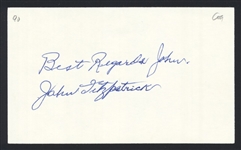 Best Regards John.
John Fitzpatrick